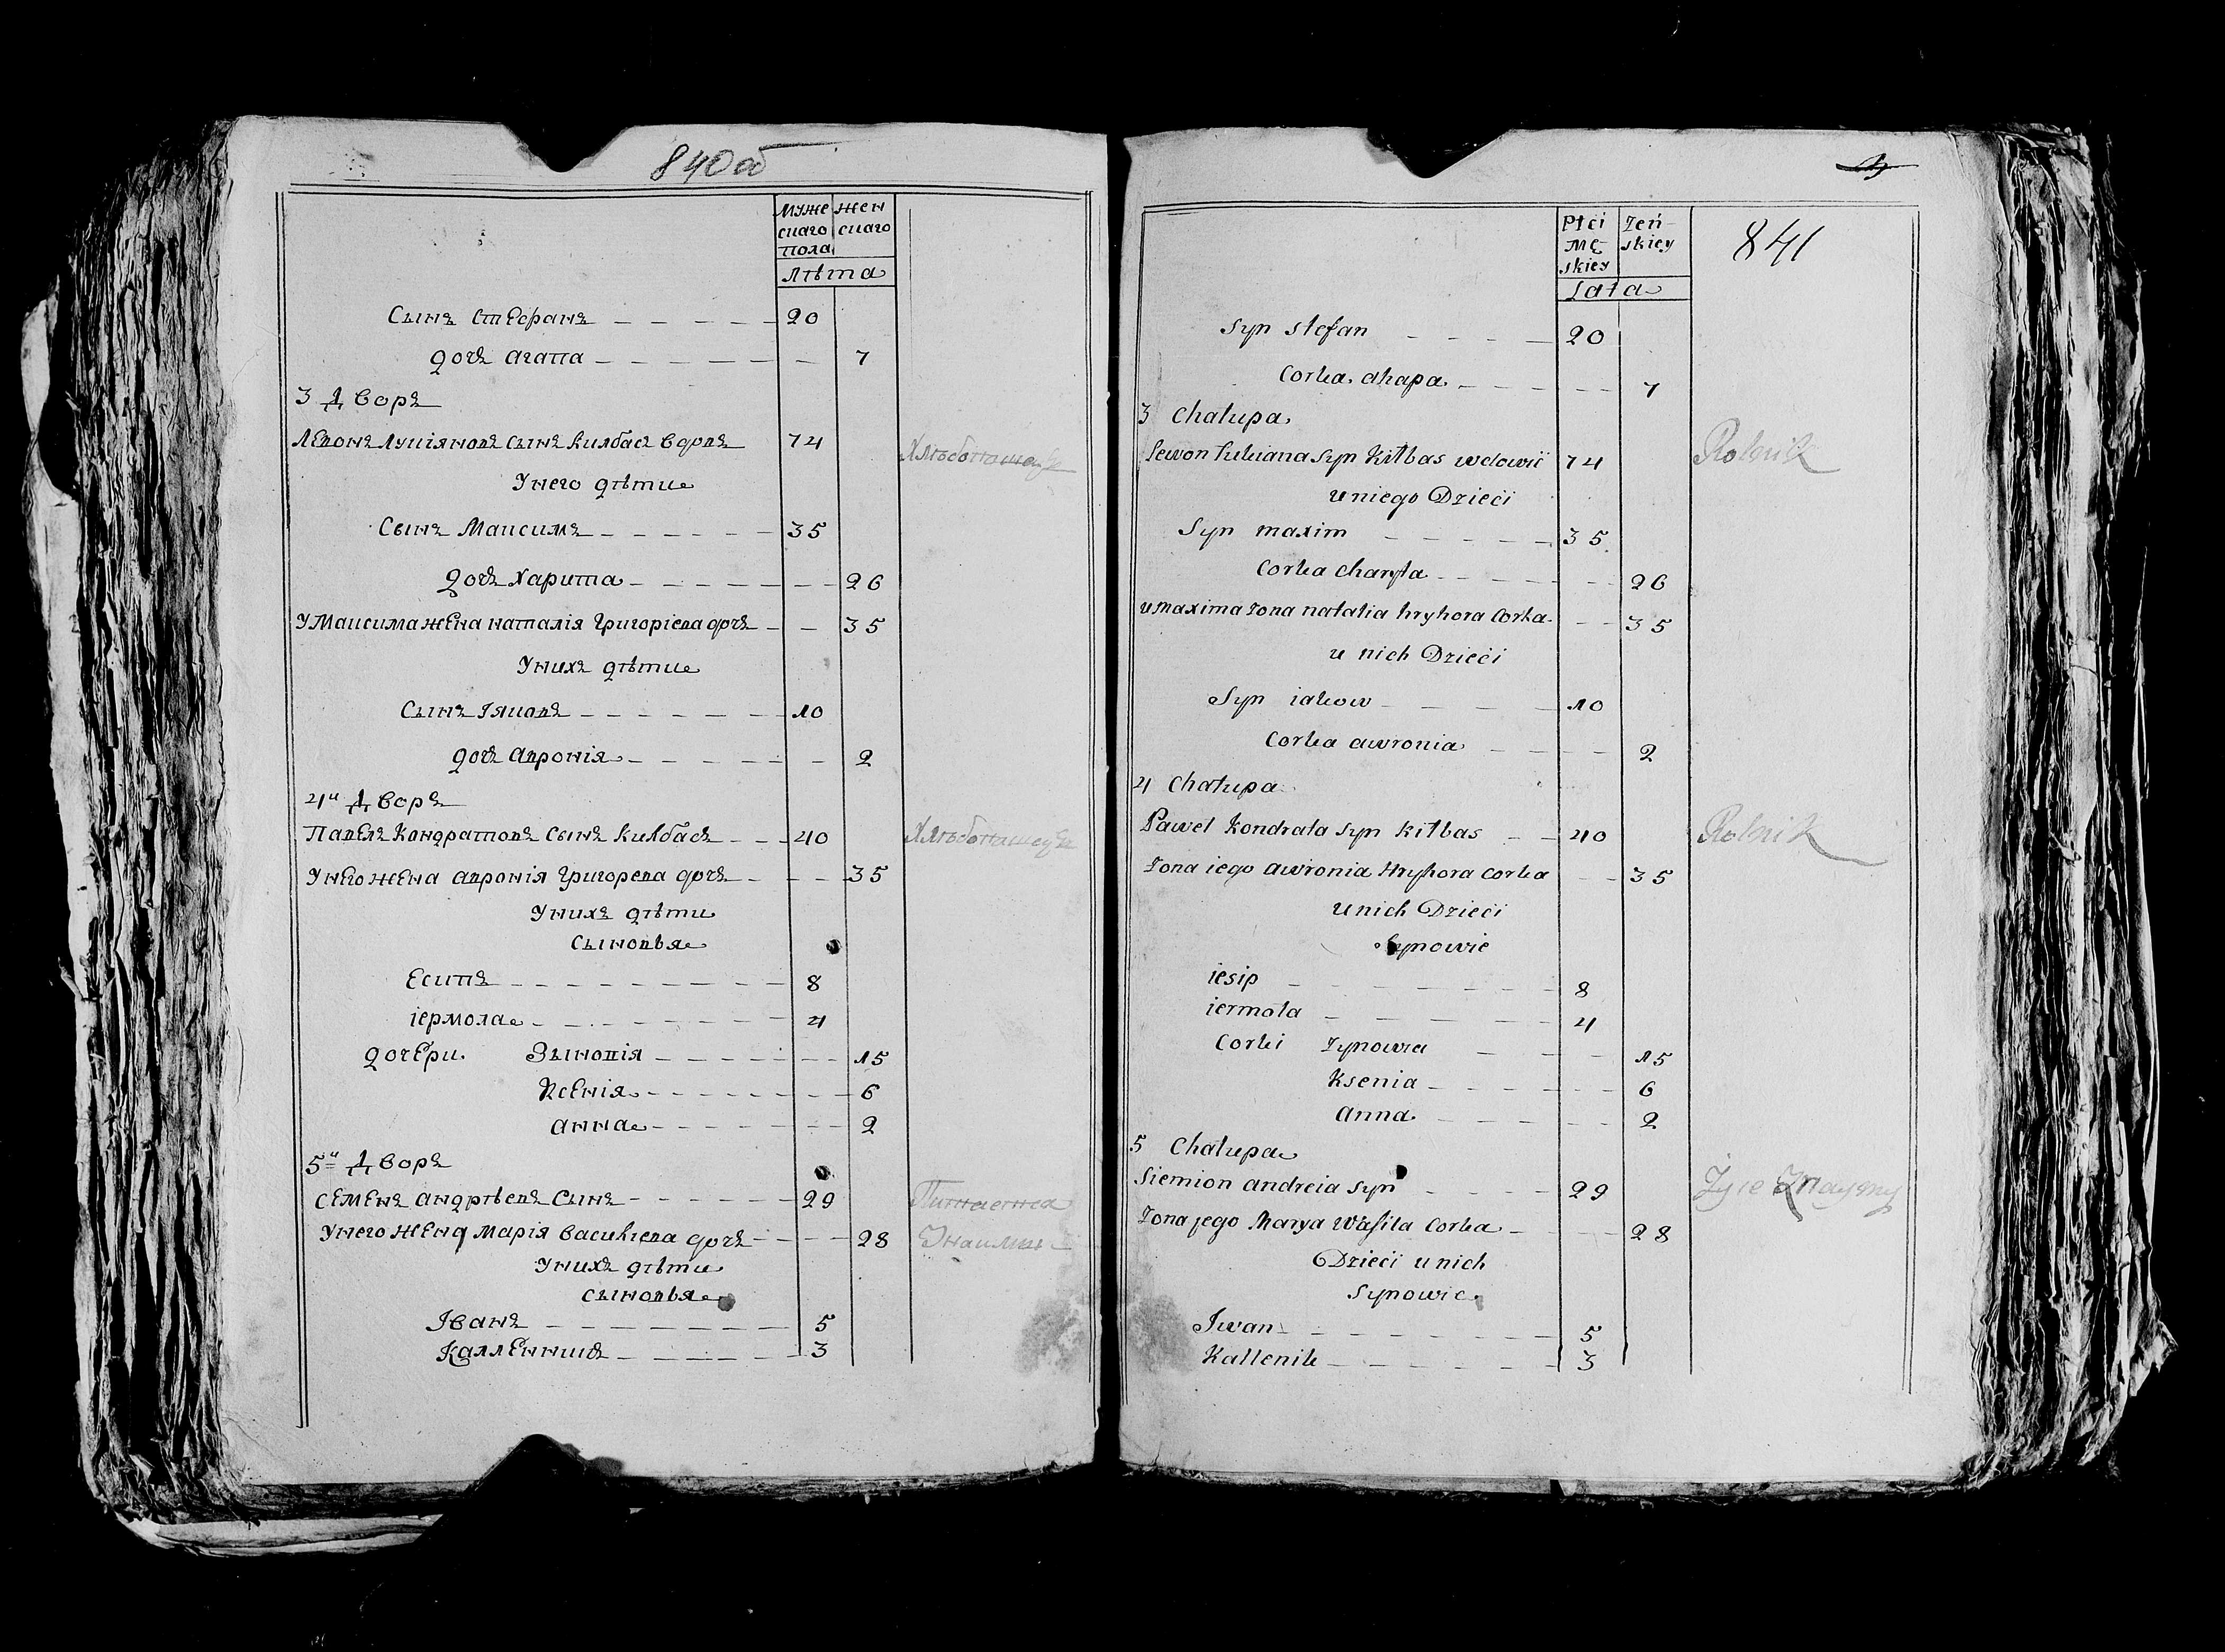 840об
муже жен
скаго скаго
пола
лѣта
Сынъ Стефанъ 20
дочь Агапа 7
3 Дворъ
Левонъ Лукіяновъ Сынъ Килбасъ вдовъ 74 Хлѣбопашецъ
У него дѣти
Сынъ Максимъ 35
дочь Харита 26
У Максима жена Наталія Григоріева дочь 35
У нихъ дѣти
Сынъ Іяковъ 10
дочь Авронія 2
4й Дворъ
Павелъ Кондратовъ Сынъ Килбасъ 40 Хлѣбопашецъ
У него жена Авронія Григорева дочь 35
У нихъ дѣти
Сыновья
Есипъ 8
іермола 4
дочери Зыновія 15
Ксенія 6
анна 2
5й Дворъ
Семенъ андрѣевъ Сынъ 29 Питается
У него жена Марія Василіева дочь 28
У нихъ дѣти
Сыновья
Іванъ 5
Калленникъ 3
Płci Żeń-
Mę- skiey
skiey
Lata
841
Syn stefan 20
Corka ahapa 7
3 Chałupa
Lewon Łukiana Syn Kiłbas wdowiĭ 74 Rolnik
u niego Dzieci
Syn maxim 35
Corka Charyta 26
u maxima żona natalia hryhora Corka 35
u nich Dzieci
Syn iakow 10
Corka awronia 2
4 Chałupa
Paweł Kondrata Syn Kiłbas 40 Rolnik
Zona iego awronia Hryhora Corka 35
U nich Dzieci
Synowie
iesip 8
iermoła 4
Corki Zynowia 15
Ksenia 6
anna 2
5 Chałupa
Siemion andreia Syn 29 Żyie
Zona jego Marya Wasila Corka 28
Dzieci u nich
Synowie
Iwan 5
Kallenik 3